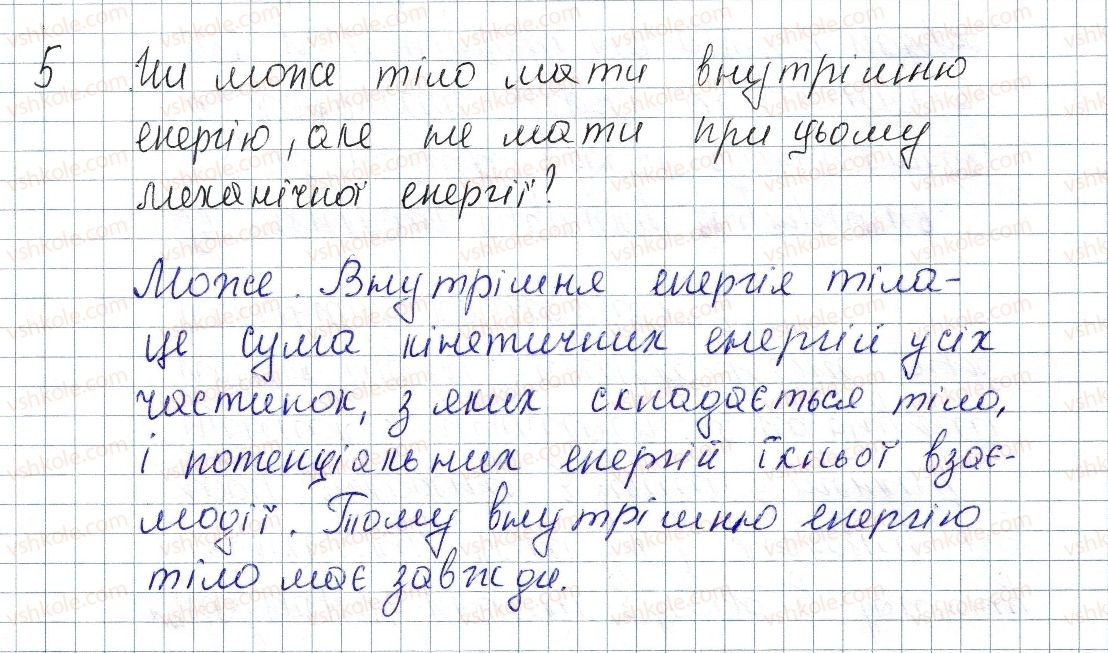 5 Чи може тіло мати внутрішню
енергію, але не мати при цьому
механічної енергії?
Може. Внутрішня енергія тіла-
це сума кінетичних енергій усіх
частинок, з яких складається тіло,
і потенціальних енергій їхньої взає-
модії. Тому внутрішню енергію
тіло має завжди.